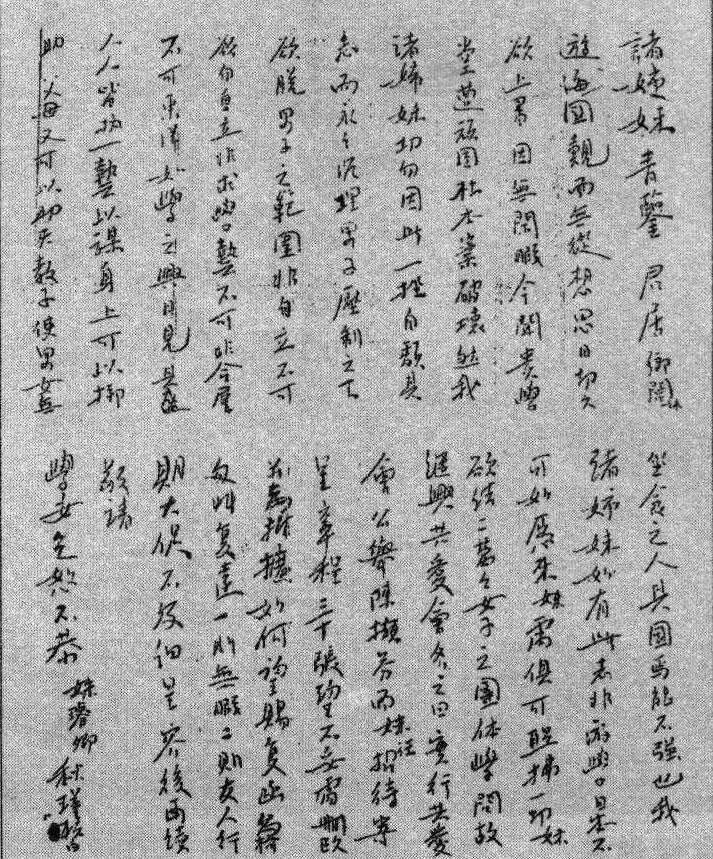 諸姊妹青鑒 君居鄉間妹
遊海國覿面無從想思日切久
欲上書因無閒暇今聞貴學
堂遭頑固黨破壞然我
諸姊妹切勿因此一挫自頹其
志而永々沉埋男子壓制之下
欲脫男子之範圍非自立不可
欲自立非求學藝不可非合羣
不可東洋女學之興日見其盛
人人皆執一藝以謀身上可以扶
助父母又可以助夫教子使男女無
坐食之人其國焉能不強也我
諸姊妹如有此志非遊學日本不
可如愿來妹處俱可照拂一切妹
欲結二萬々女子之團体學問故
繼興共愛會名之曰實行共愛
會公舉陳擷芬而妹任招待寄
呈章程三十張望不妥處刪改
並為推擴如何望賜复函
匆此复達一則無暇二則友人行
期大促不及細呈容後再續
敬請
學安乞恕不恭 妹璿卿秋瑾